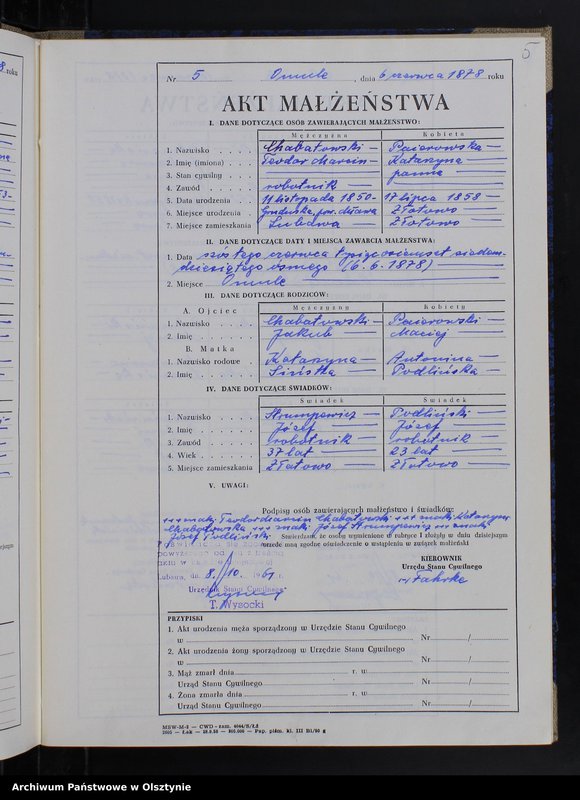 5
Nr 5 Omule, dnia 6 czerwca 1878 roku
AKT MAŁŻEŃSTWA
I. DANE DOTYCZĄCE OSÓB ZAWIERAJĄCYCH MAŁŻEŃSTWO:
Mężczyzna Kobieta
1. Nazwisko Chabatowski Paierowska
2. Imię (imiona) Teodor Marcin Katarzyna
3. Stan cywilny panna
4. Zawód robotnik
5. Data urodzenia 11 listopada 1850 17 lipca 1858
6. Miejsce urodzenia pow. Mława Złotowo
7. Miejsce zamieszkania Lubawa Złotowo
II. DANE DOTYCZĄCE DATY I MIEJSCA ZAWARCIA MAŁŻEŃSTWA:
1. Data szóstego czerwca tysiąc osiemset siedem-
dziesiątego ósmego (6.6.1878)
2. Miejsce Omule
III. DANE DOTYCZĄCE RODZICÓW:
Mężczyzny Kobiety
A. Ojciec
1. Nazwisko Chabatowski Paierowski
2. Imię Jakub Maciej
B. Matka
1. Nazwisko rodowe Katarzyna Antonina
2. Imię Podlińska
IV. DANE DOTYCZĄCE ŚWIADKÓW:
Świadek Świadek
1. Nazwisko Strumpowicz Podliński
2. Imię Józef Józef
3. Zawód robotnik robotnik
4. Wiek 37 lat 23 lat
5. Miejsce zamieszkania Złotowo Złotowo
V. UWAGI:
Podpisy osób zawierających małżeństwo i świadków:
+++ znaki Teodor Marcin Chabatowski +++ znaki Katarzyna
Chabatowska +++ znaki Józef Strumpowicz +++ znaki
Józef Podliński
Stwierdzam, że osoby wymienione w rubryce I złożyły w dniu dzisiejszym
wobec mnie zgodne oświadczenie o wstąpieniu w związek małżeński
KIEROWNIK
Urzędu Stanu Cywilnego
Lubawa, dn. 8/10. 1961 r.
Fahrke
Urzędnik Stanu Cywilnego
T. Wysocki
PRZYPISKI
1. Akt urodzenia męża sporządzony w Urzędzie Stanu Cywilnego
w Nr /
2. Akt urodzenia żony sporządzony w Urzędzie Stanu Cywilnego
w Nr /
3. Mąż zmarł dnia r. w
Urząd Stanu Cywilnego Nr /
4. Żona zmarła dnia r. w
Urząd Stanu Cywilnego Nr /
Archiwum Państwowe w Olsztynie